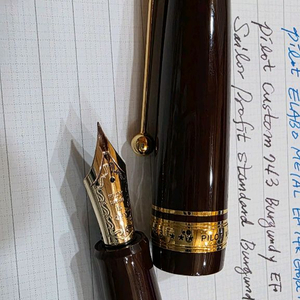 Pilot ELABO METAL EF
Pilot Custom 743 Burgundy EF
Sailor Profit Standard Burgund
PIL